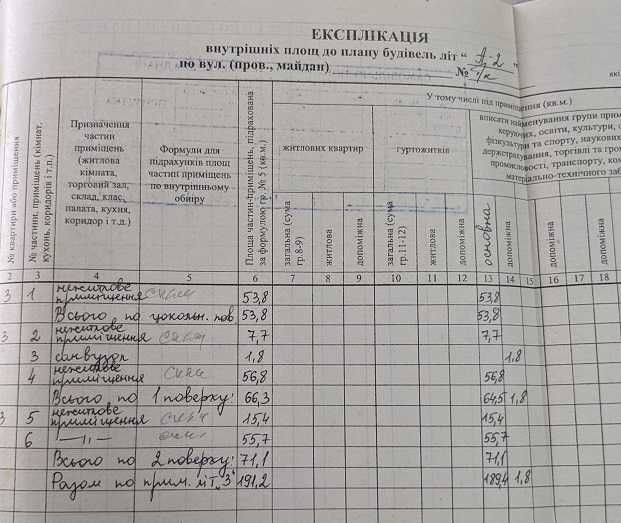 ЕКСПЛІКАЦІЯ
внутрішніх площ до плану будівель літ " А-2 "
по вул. (пров., майдан) № н/к
У тому числі під приміщення (кв.м.)
№ квартири або приміщення
№ частини, приміщень (кімнат, кухонь, коридорів і т.п.)
Призначення частин приміщень (житлова кімната, торговий зал, склад, клас, палата, кухня, коридор і т.д.)
Формули для підрахунків площ частині приміщень по внутрішньому обміру
Площа частин-приміщень, підрахована за формулою гр. № 5 (кв.м.)
житлових квартир
гуртожитків
вписати найменування групи прим
керуючих, освіти, культури,
фізкультури та спорту, наукових
держстрахування, торгівлі та гро
промисловості, транспорту, ко
матеріально-технічного заб
загальна (сума гр.8-9)
житлова
допоміжна
загальна (сума гр.11-12)
житлова
допоміжна
основна
допоміжна
допоміжна
допоміжна
2 3 4 5 6 7 8 9 10 11 12 13 14 15 16 17 18
3 1 нежитлове приміщення 53,8 53,8
Всього по цокольн. пов. 53,8 53,8
3 2 нежитлове приміщення 7,7 7,7
3 санвузол 1,8 1,8
4 нежитлове приміщення 56,8 56,8
Всього по 1 поверху: 66,3 64,5 1,8
3 5 нежитлове приміщення 15,4 15,4
6 —〃— 55,7 55,7
Всього по 2 поверху: 71,1 71,1
Разом по прим. літ. "3" 191,2 189,4 1,8